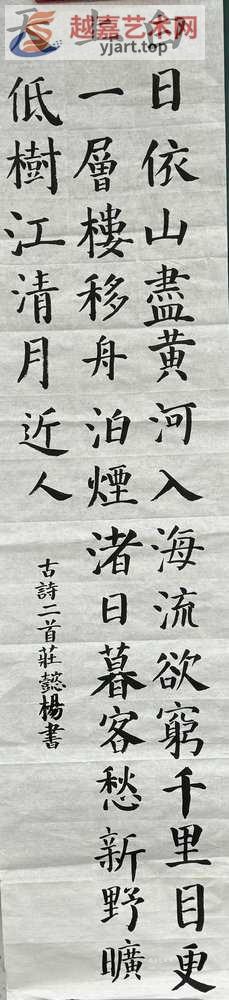 越嘉艺术网
yjart.top
白日依山盡黄河入海流欲窮千里目更
上一層樓移舟泊煙渚日暮客愁新野曠
天低樹江清月近人
古詩二首莊懿楊書